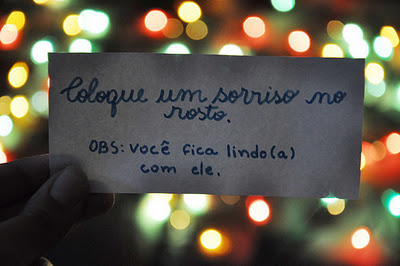 Coloque um sorriso no
rosto.
OBS: você fica lindo(a)
com ele.